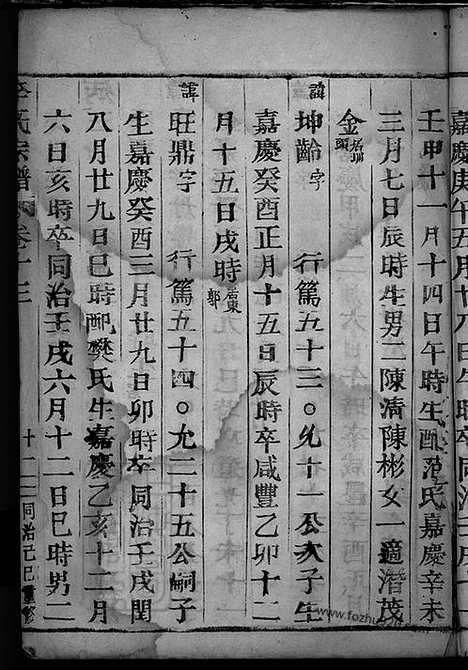 嘉慶庚午五月十八日午時卒同治
壬申十一月十四日午時生配范氏嘉慶辛未
三月七日辰時生男二陳清陳彬女一適潛茂
金
諱坤齡字 行篤五十三〇允十一公次子生
嘉慶癸酉正月十五日辰時卒咸豐乙卯十二
月十五日戌時廣東
諱旺鼎字 行篤五十四〇允二十五公嗣子
生嘉慶癸酉三月廿九日卯時卒同治壬戌閏
八月廿九日巳時配樊氏生嘉慶乙亥十二月
六日亥時卒同治壬戌六月十二日巳時男二
氏宗譜 卷十三 十二 同治己巳重修
www.fozhu